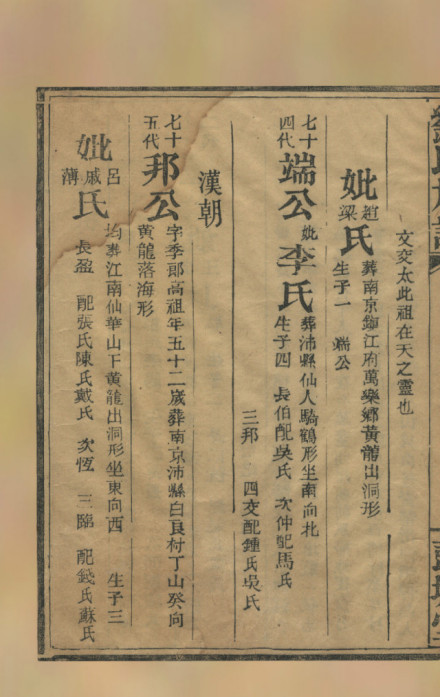 文交太此祖在天之靈也
妣趙梁氏 葬南京鎮江府萬樂鄉黃龍出洞形
生子一 端公
七十四代 端公 妣李氏 葬沛縣仙人騎鶴形坐南向北
生子四 長伯配吳氏 次仲配馬氏
三邦 四交配鍾氏吳氏
漢朝
七十五代 邦公 字季郎高祖年五十二歲葬南京沛縣白良村丁山癸向
黃龍落海形
妣呂戚薄氏 均葬江南仙華山下黃龍出洞形坐東向西 生子三
長盈 配張氏陳氏戴氏 次恆 三臨 配錢氏蘇氏